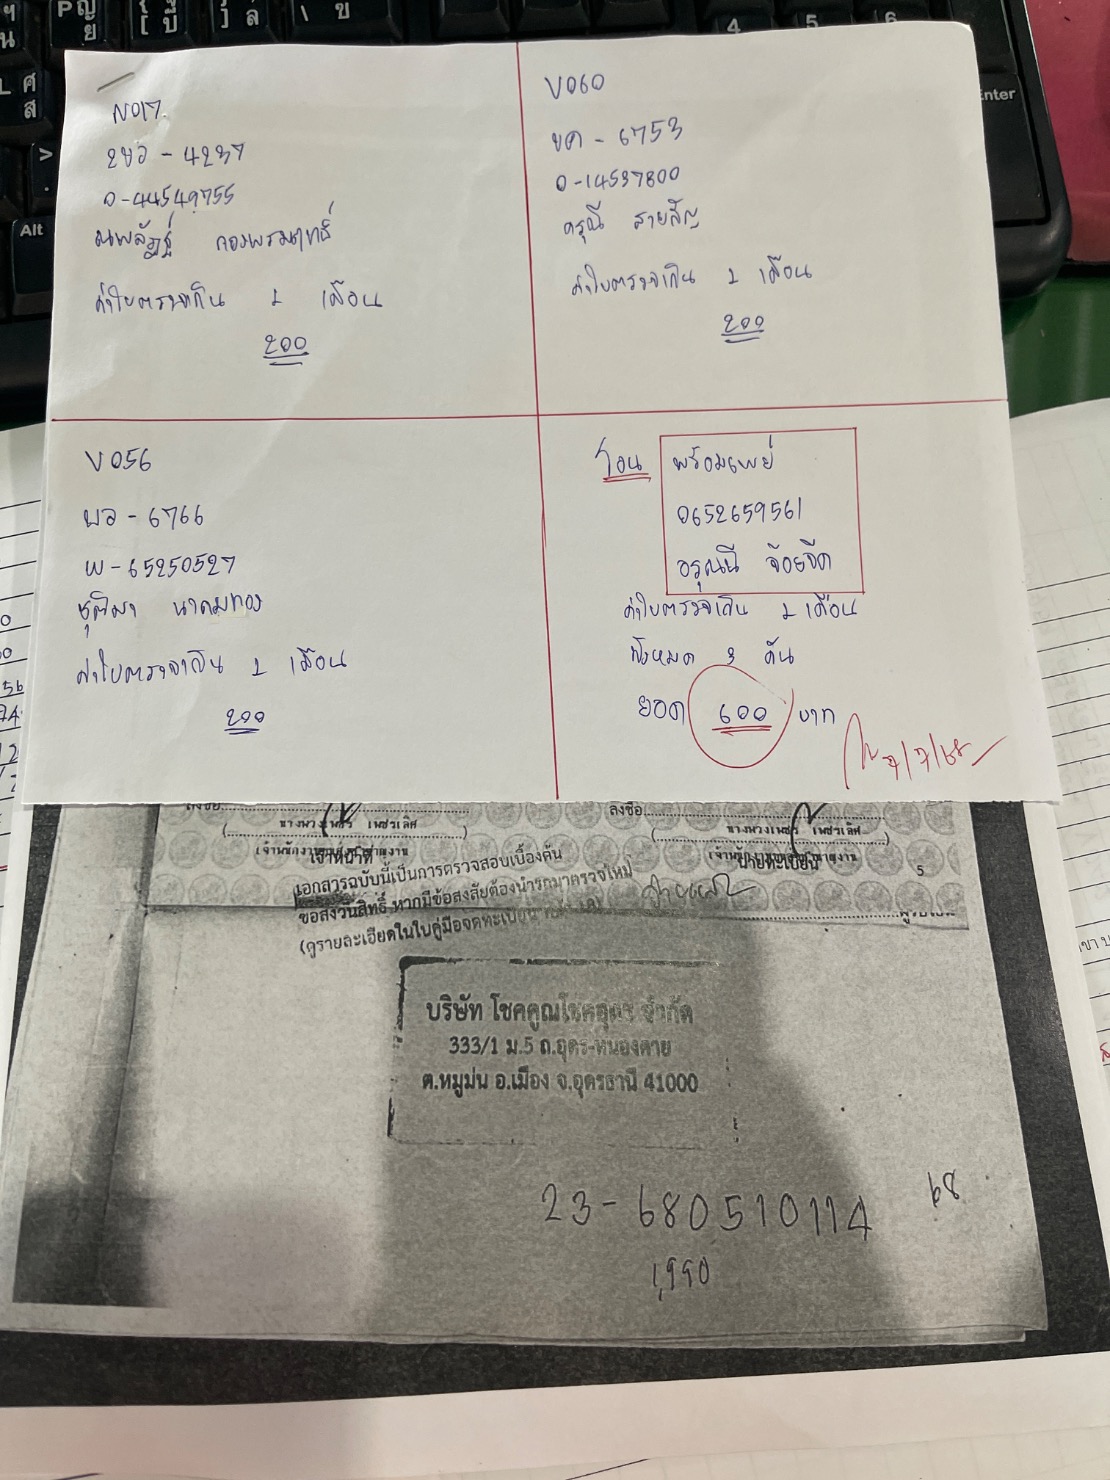 N017
2ขอ - 4237
0-44549755
ณพลัฏฐ์
ค่าใบตรวจเกิน 1 เดือน
200
V060
ขค - 6753
0-14537800
ดรุณี สายสัญ
ค่าใบตรวจเกิน 1 เดือน
200
V056
ผอ - 6766
W-65250527
ชุติมา นาคมทอง
ค่าใบตรวจเกิน 1 เดือน
200
โอน พร้อมเพย์
0652659561
อรุณนี จ้อยจีด
ค่าใบตรวจเกิน 1 เดือน
ทั้งหมด 3 คัน
ยอด 600 บาท
7/7/68
ลงชื่อ
ลงชื่อ
นางพวงเพชร เพชรเลิศ
นางพวงเพชร เพชรเลิศ
เจ้าหน้าที่
นายทะเบียน
5
เอกสารฉบับนี้เป็นการตรวจสอบเบื้องต้น
ขอสงวนสิทธิ์ หากมีข้อสงสัยต้องนำรถมาตรวจใหม่
(ดูรายละเอียดในใบคู่มือจดทะเบียน
บริษัท โชคคูณโชคอุดร จำกัด
333/1 ม.5 ถ.อุดร-หนองคาย
ต.หมูม่น อ.เมือง จ.อุดรธานี 41000
23-680510114
68
1,990